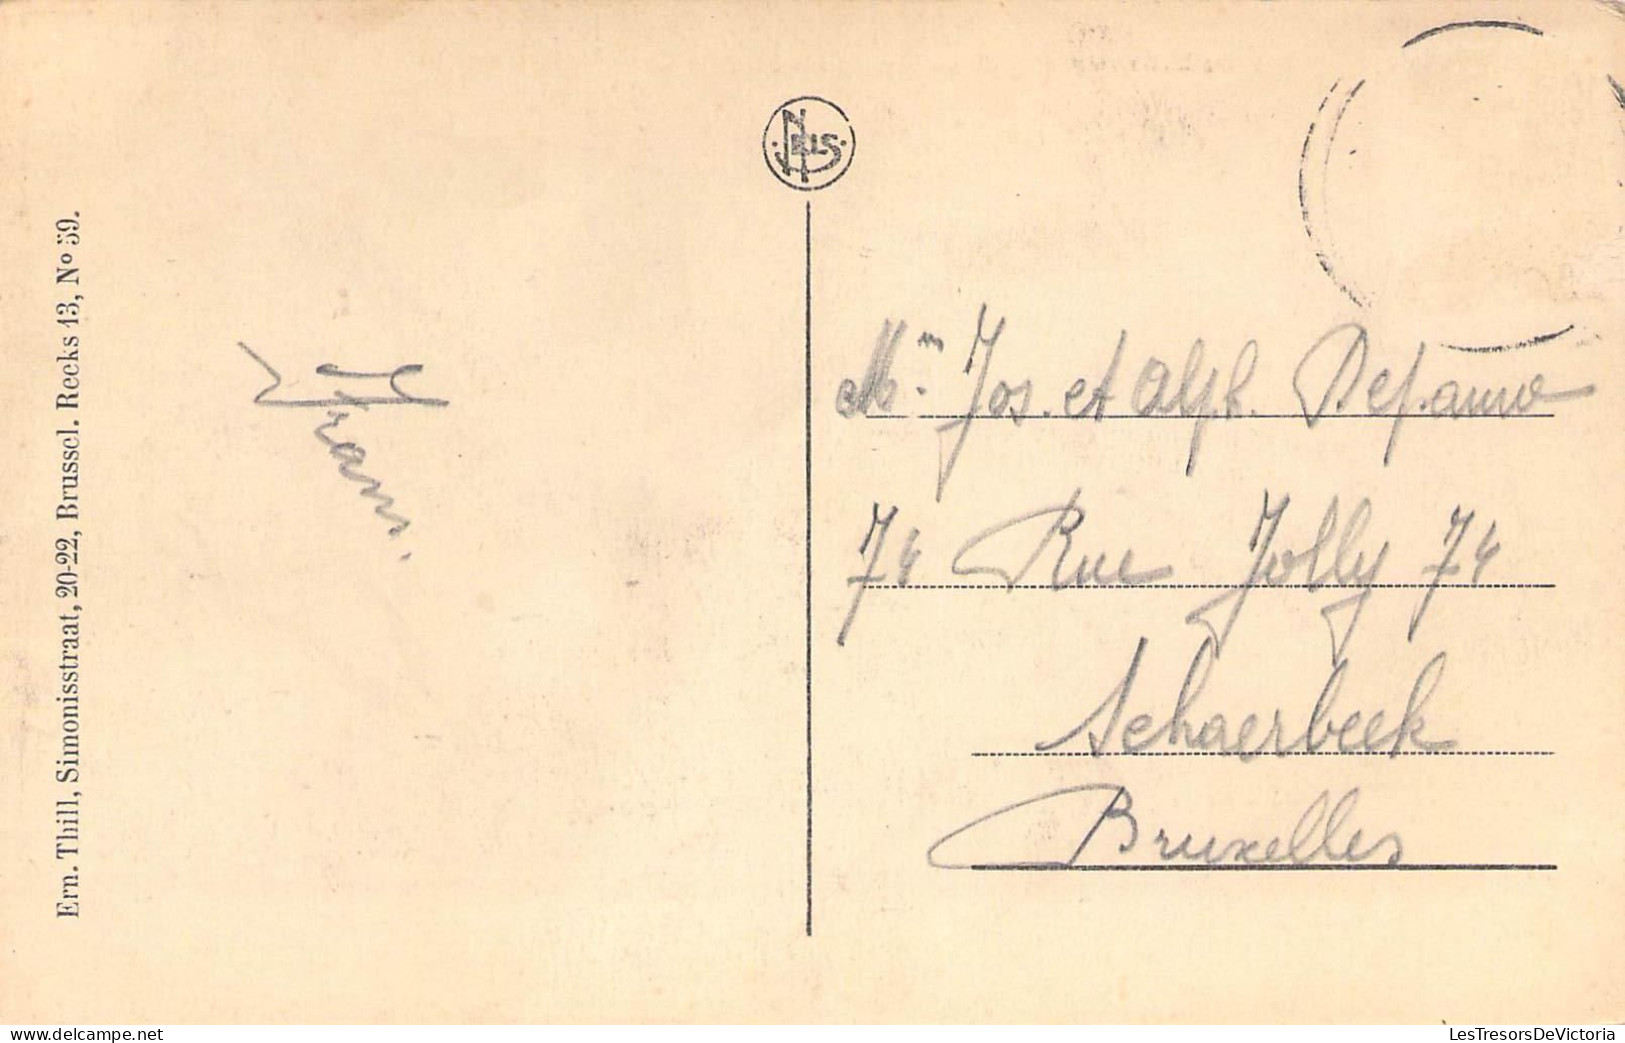 Ern. Thill, Simonisstraat, 20-22, Brussel. Reeks 13, No 59.
NELS
Frans.
Mm. Jos. et Alph.
74 Rue Jolly 74
Schaerbeek
Bruxelles
LesTresorsDeVictoria